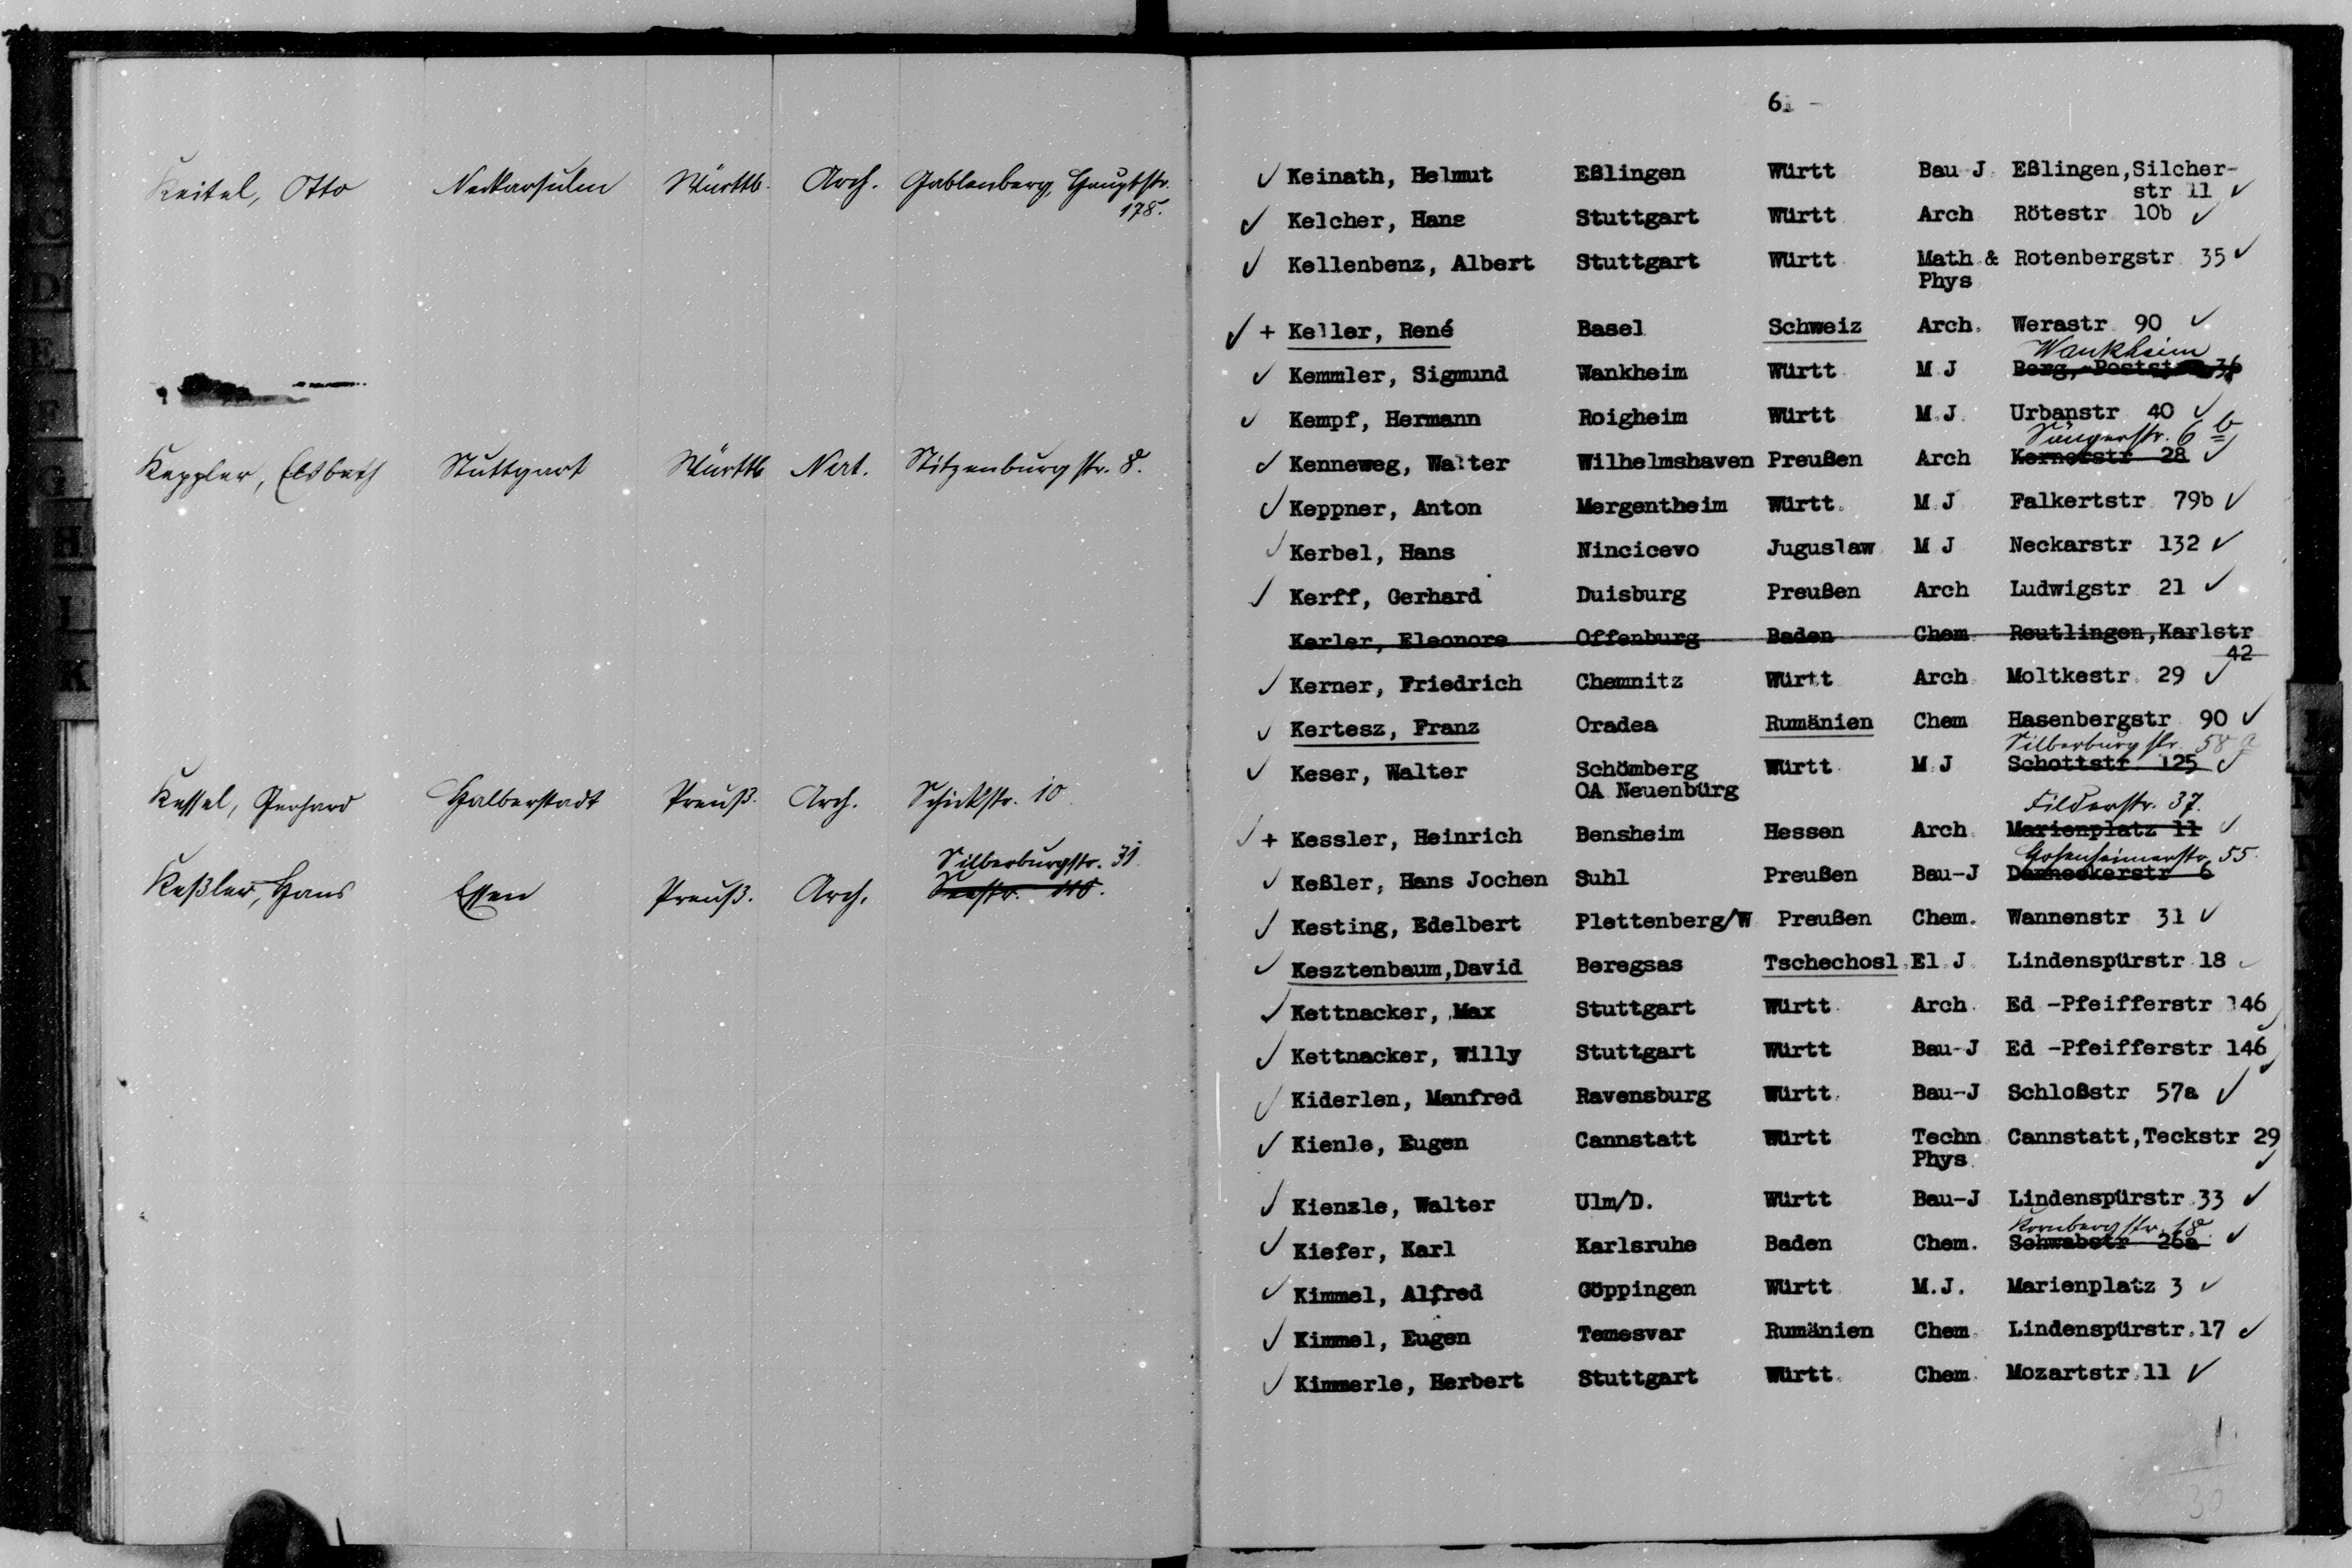 Keitel, Otto Neckarsulm Württb. Arch. Gablenberg, Hauptstr.
178.
Keppler, Elsbeth Stuttgart Württb Nat. Stitzenburgstr. 8.
Kessel, Gerhard Halberstadt Preuß. Arch. Schickstr. 10
Silberburgstr. 31
Keßler, Hans Essen Preuß. Arch. Seestr. 118.
C
D
E
F
G
H
I
K
61 -
✓ Keinath, Helmut Eßlingen Württ Bau-J. Eßlingen,Silcher-
str 11 ✓
✓ Kelcher, Hans Stuttgart Württ Arch Rötestr 10b ✓
✓ Kellenbenz, Albert Stuttgart Württ Math & Rotenbergstr 35 ✓
Phys
✓ + Keller, René Basel Schweiz Arch. Werastr 90 ✓
Wankheim
✓ Kemmler, Sigmund Wankheim Württ M J Berg, Poststr 36
✓ Kempf, Hermann Roigheim Württ M.J. Urbanstr 40 ✓
Sängerstr. 6 b
✓ Kenneweg, Walter Wilhelmshaven Preußen Arch Kernerstr 28 ✓
✓ Keppner, Anton Mergentheim Württ. M.J Falkertstr 79b ✓
✓ Kerbel, Hans Nincicevo Juguslaw M J Neckarstr 132 ✓
✓ Kerff, Gerhard Duisburg Preußen Arch Ludwigstr 21 ✓
Kerler, Eleonore Offenburg Baden Chem Reutlingen,Karlstr
42
✓ Kerner, Friedrich Chemnitz Württ Arch Moltkestr. 29 ✓
✓ Kertesz, Franz Oradea Rumänien Chem Hasenbergstr 90 ✓
Silberburgstr. 58 a
✓ Keser, Walter Schömberg Württ M.J Schottstr 125 ✓
OA Neuenbürg
Filderstr. 37.
✓ + Kessler, Heinrich Bensheim Hessen Arch Marienplatz 11 ✓
Hohenheimerstr. 55.
✓ Keßler, Hans Jochen Suhl Preußen Bau-J Danneckerstr 6
✓ Kesting, Edelbert Plettenberg/W Preußen Chem. Wannenstr 31 ✓
✓ Kesztenbaum,David Beregsas Tschechosl. El J. Lindenspürstr 18 ✓
✓ Kettnacker, Max Stuttgart Württ Arch. Ed -Pfeifferstr 146
✓ Kettnacker, Willy Stuttgart Württ Bau-J Ed -Pfeifferstr 146
✓ Kiderlen, Manfred Ravensburg Württ. Bau-J Schloßstr 57a ✓
✓ Kienle, Eugen Cannstatt Württ Techn Cannstatt,Teckstr 29
Phys ✓
✓ Kienzle, Walter Ulm/D. Württ Bau-J Lindenspürstr.33 ✓
Kornbergstr. 18
✓ Kiefer, Karl Karlsruhe Baden Chem. Schwabstr 26a ✓
✓ Kimmel, Alfred Göppingen Württ M.J. Marienplatz 3 ✓
✓ Kimmel, Eugen Temesvar Rumänien Chem. Lindenspürstr.17 ✓
✓ Kimmerle, Herbert Stuttgart Württ. Chem. Mozartstr.11 ✓
1.
30